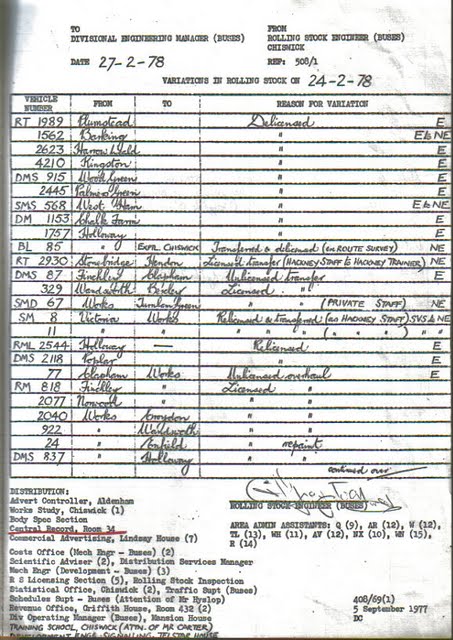 TO FROM
DIVISIONAL ENGINEERING MANAGER (BUSES) ROLLING STOCK ENGINEER (BUSES)
CHISWICK
DATE 27-2-78 REF: 508/1
VARIATIONS IN ROLLING STOCK ON 24-2-78
VEHICLE NUMBER FROM TO REASON FOR VARIATION
RT 1989 Plumstead Delicensed E
1562 Barking " E & NE
2623 Harrow Weald " E
4210 Kingston " E
DMS 915 Wood Green " E
2445 Palmers Green " E
SMS 568 West Ham " E & NE
DM 1153 Chalk Farm " E
1757 Holloway " E
BL 85 " EXPTL. CHISWICK Transferred & delicensed (en ROUTE SURVEY) NE
RT 2930 Stonebridge Hendon Licensed transfer (HACKNEY STAFF to HACKNEY TRAINER) NE
DMS 87 Finchley Clapham Unlicensed transfer E
329 Wandsworth Bexley Licensed " E
SMD 67 Works Turnham Green " " (PRIVATE STAFF) NE
SM 8 Victoria Works Relicensed & transferred (as HACKNEY STAFF) SVS & NE
11 " " " " ( " " ) " "
RML 2544 Holloway — Relicensed E
DMS 2118 Poplar " E
77 Clapham Works Unlicensed overhaul E
RM 818 Finchley " Licensed "
2077 Norwood " " "
2040 Works Croydon " "
922 " Wandsworth " "
24 " Enfield " repaint
DMS 837 " Holloway " "
continued over
DISTRIBUTION:
Advert Controller, Aldenham
Works Study, Chiswick (1)
Body Spec Section
Central Record, Room 34
Commercial Advertising, Lindsay House (7)
Costs Office (Mech Engr - Buses) (2)
Scientific Adviser (2), Distribution Services Manager
Mech Engr (Development - Buses) (3)
R S Licensing Section (5), Rolling Stock Inspection
Statistical Office, Chiswick (2), Traffic Supt (Buses)
Schedules Supt - Buses (Attention of Mr Hyslop)
Revenue Office, Griffith House, Room 432 (2)
Div Operating Manager (Buses), Mansion House
TRAINING SCHOOL, CHISWICK (ATTN. OF MR CARTER)
DEVELOPMENT ENGR. SIGNALLING, TELSTAR HOUSE
ROLLING STOCK ENGINEER (BUSES)
AREA ADMIN ASSISTANTS: Q (9), AR (12), W (12),
TL (13), WH (11), AV (12), NX (10), WN (15),
R (14)
408/69(1)
5 September 1977
DC